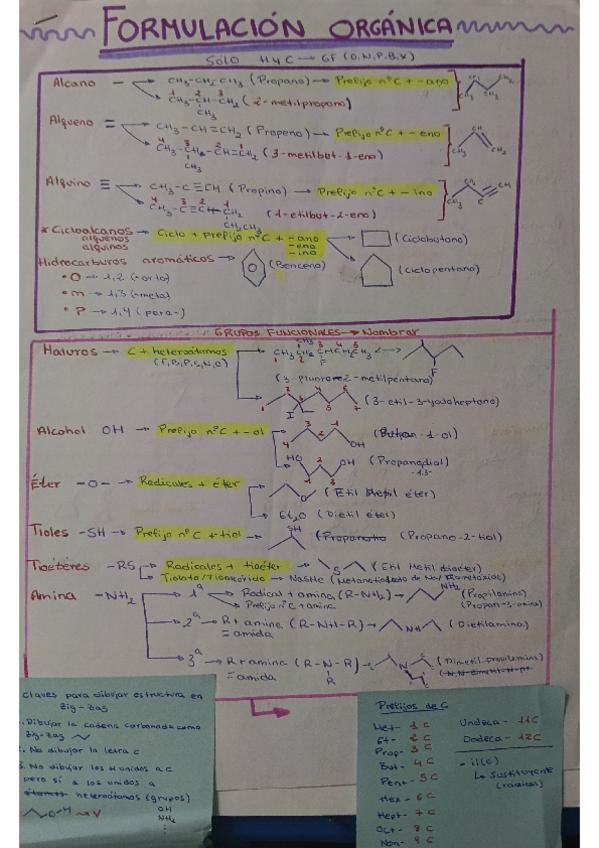 FORMULACIÓN ORGÁNICA
SOLO H y C → GF (O, N, P, B, X)
Alcano — CH₃-CH₂-CH₃ (Propano) → Prefijo nºC + -ano
CH₃-CH-CH₃ (2-metilpropano)
CH₃
Alqueno = CH₃-CH=CH₂ (Propeno) → Prefijo nºC + -eno
(3-metilbut-1-eno)
CH₃
Alquino ≡ CH₃-C≡CH (Propino) → Prefijo nºC + -ino
(1-etilbut-2-eno)
* Cicloalcanos → Ciclo + prefijo nºC + -ano (Ciclobutano)
alquenos -eno
alquinos -ino
Hidrocarburos aromáticos → (Benceno) (Ciclopentano)
• O → 1,2 (-orto)
• m → 1,3 (-meta)
• P → 1,4 (para-)
GRUPOS FUNCIONALES → Nombrar
Haluros → C + heteroátomos
F
(3-fluoro-2-metilpentano)
I (3-etil-3-yodoheptano)
Alcohol OH → Prefijo nºC + -ol OH
HO OH
Éter -O- → Radicales + éter O (Etil Metil éter)
Et₂O (Dietil éter)
Tioles -SH → Prefijo nºC + -tiol SH (Propano-2-tiol)
Tioéteres -RS Radicales + tioéter S (Etil Metil tioéter)
Amina -NH₂ 1ª Radical + amina (R-NH₂) → NH₂ (Propilamina)
Prefijo nºC + amina (Propan-3-amina)
2ª → R + amina (R-NH-R) → NH (Dietilamina)
= amida
3ª → R + amina (R-N-R) → N
= amida R
Claves para dibujar estructura en
Zig-Zag
1. Dibujar la cadena carbonada como
Zig-Zag
2. No dibujar la letra C
3. No dibujar los H unidos a C
pero sí a los unidos a
heteroátomos (grupos)
OH
NH₂
...
Prefijos de C
Met- 1C
Et- 2C
Prop- 3C
But- 4C
Pent- 5C
Hex- 6C
Hept- 7C
Oct- 8C
Non- 9C
Undeca- 11C
Dodeca- 12C
- il(o)
↳ Sustituyente
(radical)